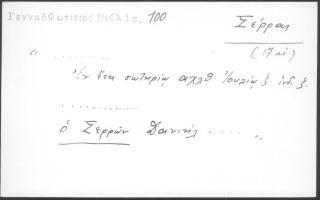 Γενναδ Φωτίειος Βιβλ 1 σ. 100
Σέρραι
(17 αι.)
"...........
Ἐν ἔτει σωτηρίῳ αχλθ Ἰουλίῳ ξ. ἰνδ. ξ.
...............
ὁ Σερρῶν Δανιήλ ..... "